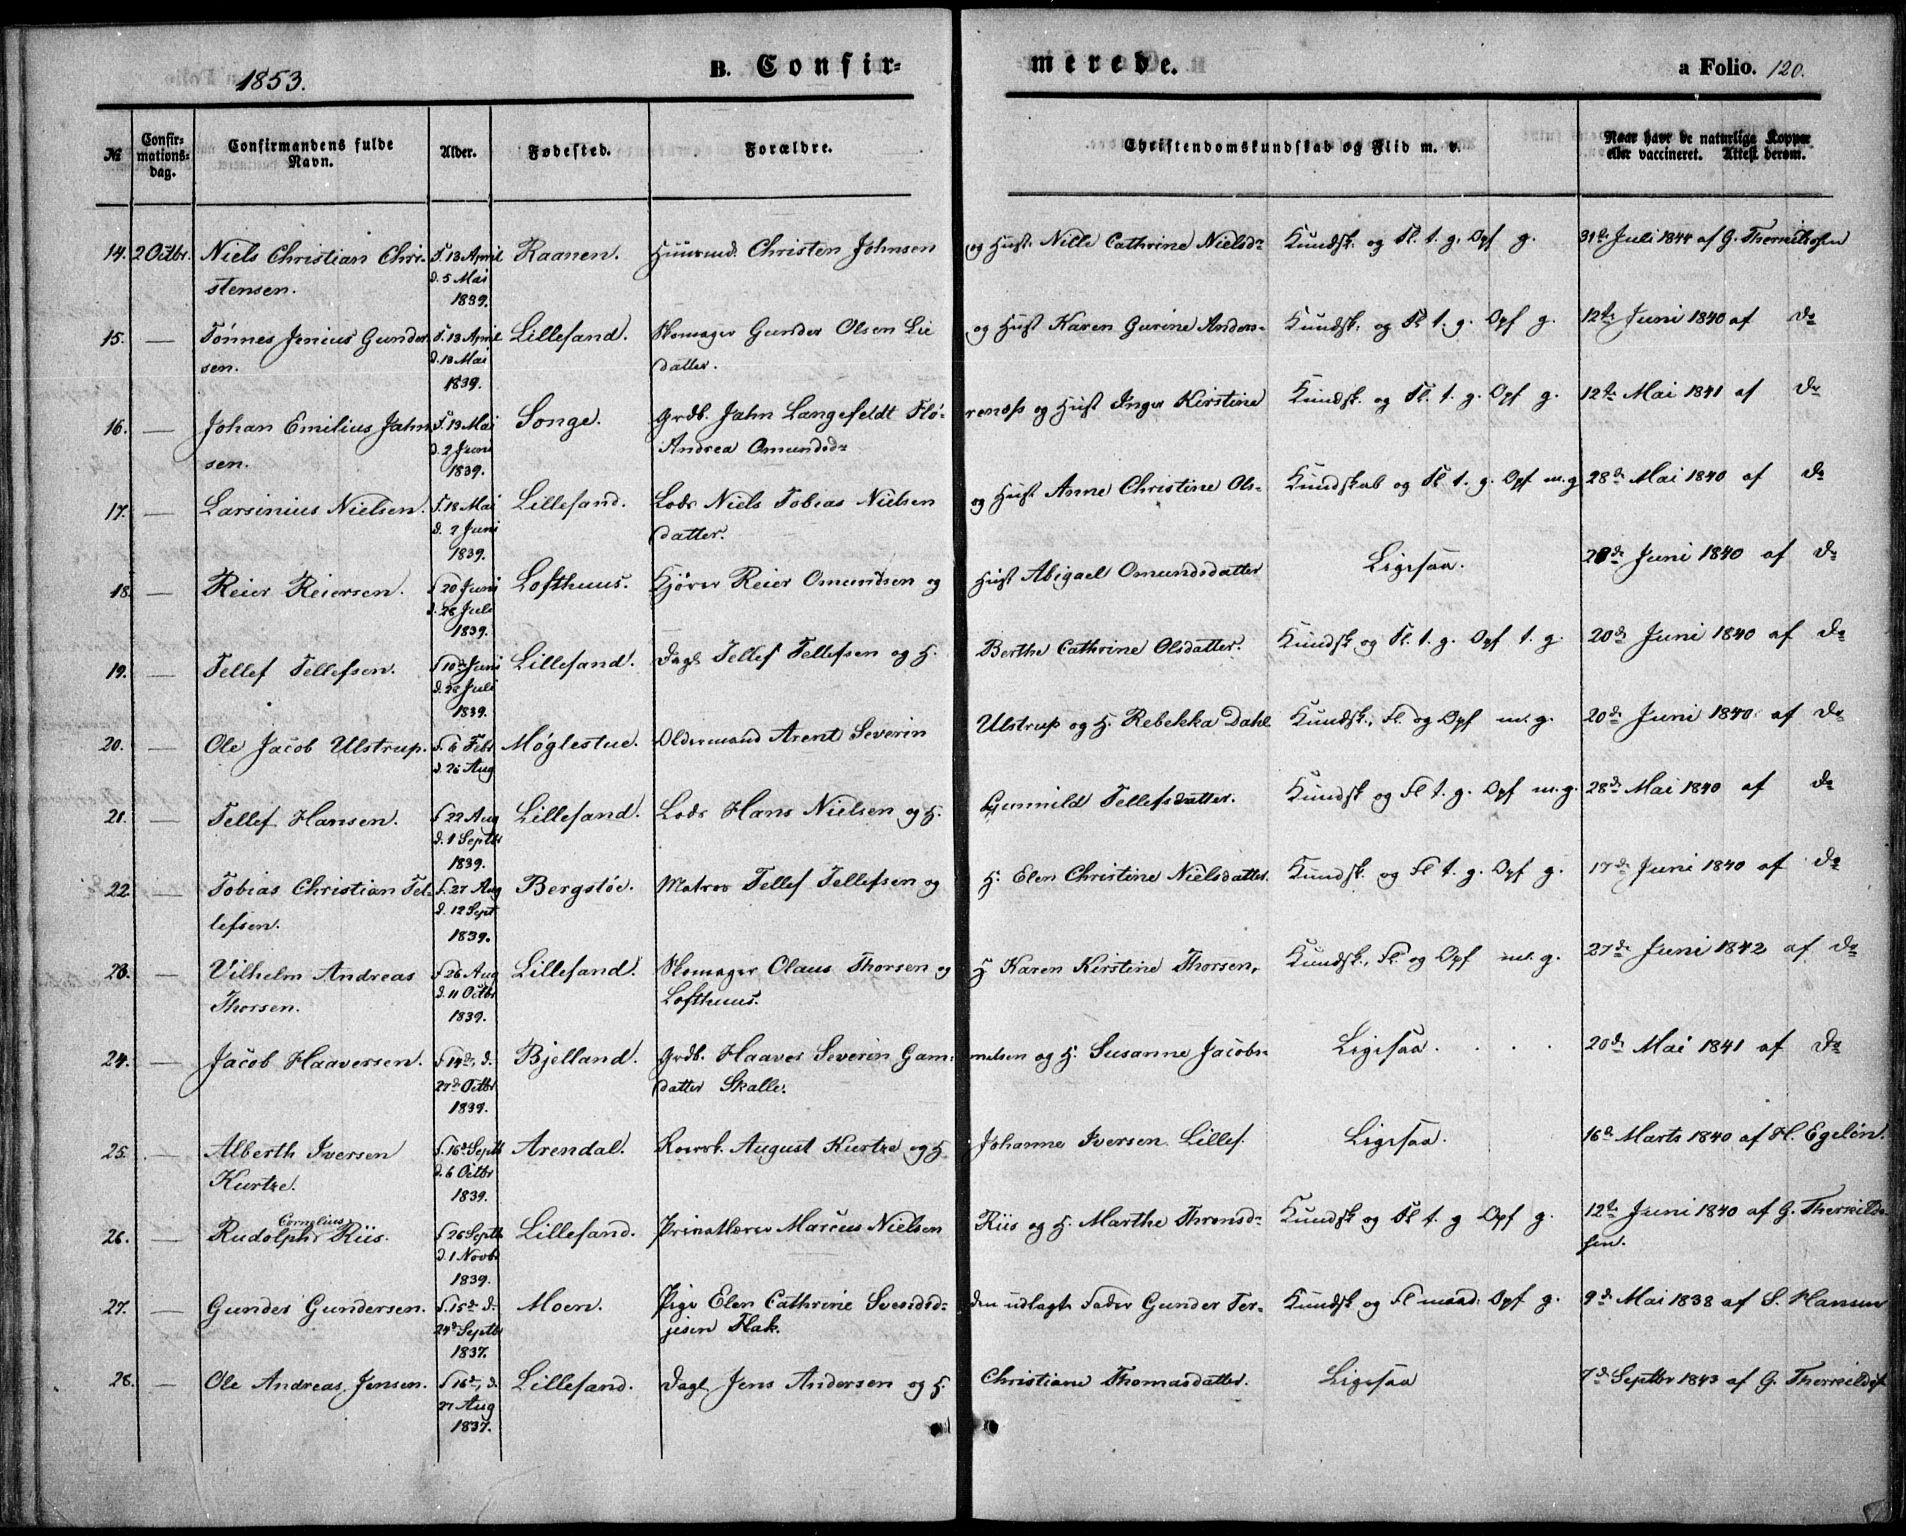 1853.
B. Confir-
merede.
a Folio. 120.
№
Confir-
mations-
dag.
Confirmandens fulde
Navn.
Alder.
Fødested.
Forældre.
Christendomskundskab og Flid m. v.
Naar havt de naturlige Kopper
eller vaccineret. Attest derom.
14. 2 Octbr. Niels Christian Chri- F. 13 April Raanen. Huusmd. Christen Johnsen og Hust. Nille Cathrine Nielsdr Kundsk. og Fl. t. g. Opf g. 31te Juli 1844 af G. Therkildsen
stensen. d. 5 Mai
1839.
15. — Tønnes Jenius Gunder F. 13 April Lillesand. Skomager Gunder Olsen Lie og Hust Karen Gurine Anders- Kundsk. og Fl t. g. Opf g. 12te Juni 1840 af do
sen. d. 13 Mai datter.
1839.
16. — Johan Emilius Jahn F. 13 Mai Songe. Grdb. Jahn Langefeldt Flø- renæss og Hust Inger Kirstine Kundsk. og Fl. t. g. Opf g. 12te Mai 1841 af do
sen. d. 2 Juni Andrea Omundsdr
1839.
17. — Larsinius Nielsen. F. 18 Mai Lillesand. Lods Niels Tobias Nielsen og Hust Anne Christine Ols- Kundskab og Fl t. g. Opf m.g 28de Mai 1840 af do
d. 2 Juni datter.
1839.
18. — Reier Reiersen. F 20 Juni Lofthuus. Kjører Reier Omundsen og Hust Abigael Omundsdatter Ligesaa. 28de Juni 1840 af do
d. 28 Juli
1839.
19. — Tellef Tellefsen. F 10de Juni Lillesand. Dagl Tellef Tellefsen og H. Berthe Cathrine Olsdatter. Kundsk og Fl. t. g. Opf t. g. 20de Juni 1840 af do
d. 28 Juli
1839.
20. — Ole Jacob Ulstrup. F. 6 Febr Møglestue. Oldermand Arent Severin Ulstrup og H. Rebekka Dahl Kundsk., Fl og Opf m. g. 20de Juni 1840. af do
d. 26 Aug
21. — Tellef Hansen. F 22 Aug Lillesand. Lods Hans Nielsen og H. Gunnild Tellefsdatter. Kundsk og Fl t. g. Opf m.g. 28de Mai 1840 af do
d. 1 Septbr
1839.
22. — Tobias Christian Tel- F. 27 Aug Bergstøe. Matros Tellef Tellefsen og H. Elen Christine Nielsdatter. Kundsk. og Fl t. g. Opf g. 17de Juni 1840 af do
lefsen. d. 12 Sept
1839.
23. — Vilhelm Andreas F 26 Aug Lillesand. Skomager Olaus Thorsen og H Karen Kirstine Thorsen, Kundsk., Fl. og Opf m. g. 27de Juni 1842 af do
Thorsen. d. 11 Octbr Lofthuus.
1839.
24. — Jacob Haaversen. F 14de, d. Bjelland. Grdb. Haaver Severin Gam- melsen og H. Susanne Jacobs- Ligesaa. 20de Mai 1841 af do
27de Octbr datter Skalle.
1839.
25. — Alberth Iversen F. 16de Septb Arendal. August Kurtze og H Johanne Iversen Lillef. Ligesaa. 16de Marts 1840 af H. Egeløn.
Kurtze. d. 6 Octbr
1839.
26. — Rudolph Cornelius Riis. F 26 Septb Lillesand. Privatlærer Marcus Nielsen Riis og H. Marthe Thronsdr Kundsk og Fl t. g Opf g. 12te Juni 1840 af G. Therkild-
d. 1 Novbr sen.
1839.
27. — Gunder Gundersen. F. 15de d. Moen. Pige Elen Cathrine Svendsdr den udlagte Fader Gunder Ter- Kundsk og Fl maad. Opf g. 9de Mai 1838 af S. Hansen
24de Septbr jesen Flak.
1837.
28. — Ole Andreas Jensen. F 16de, d. Lillesand. Dagl Jens Andersen og H. Christiane Thomasdatter. Ligesaa 7de Septbr 1843 af G. Therkilds
27 Aug
1837.